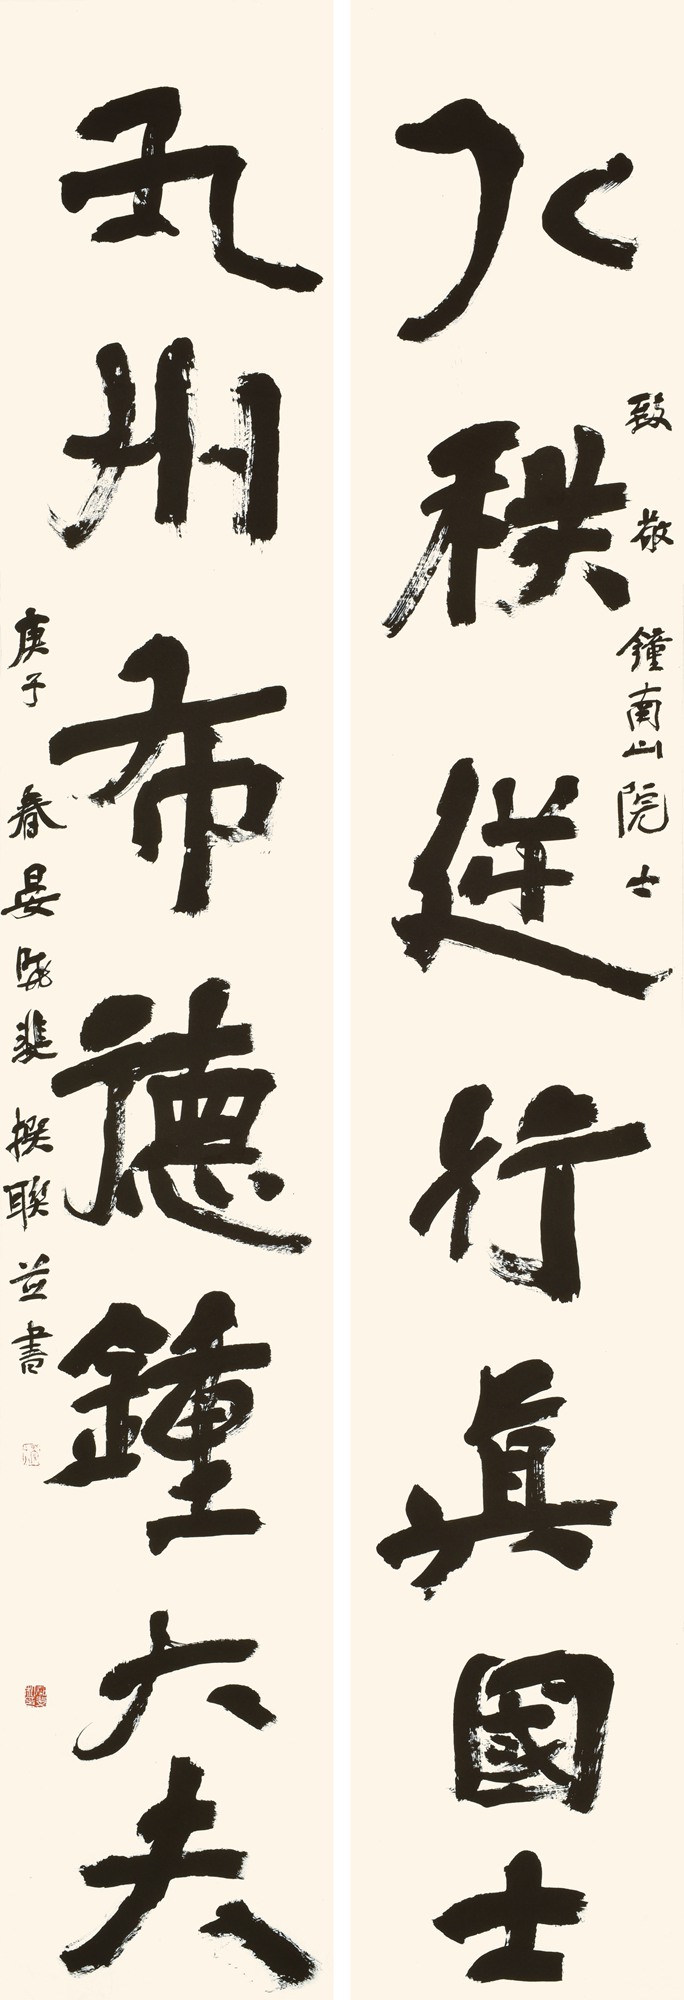 致敬鐘南山院士
八秩逆行真國士
九州布德鍾大夫
庚子春晏曉斐撰聯並書